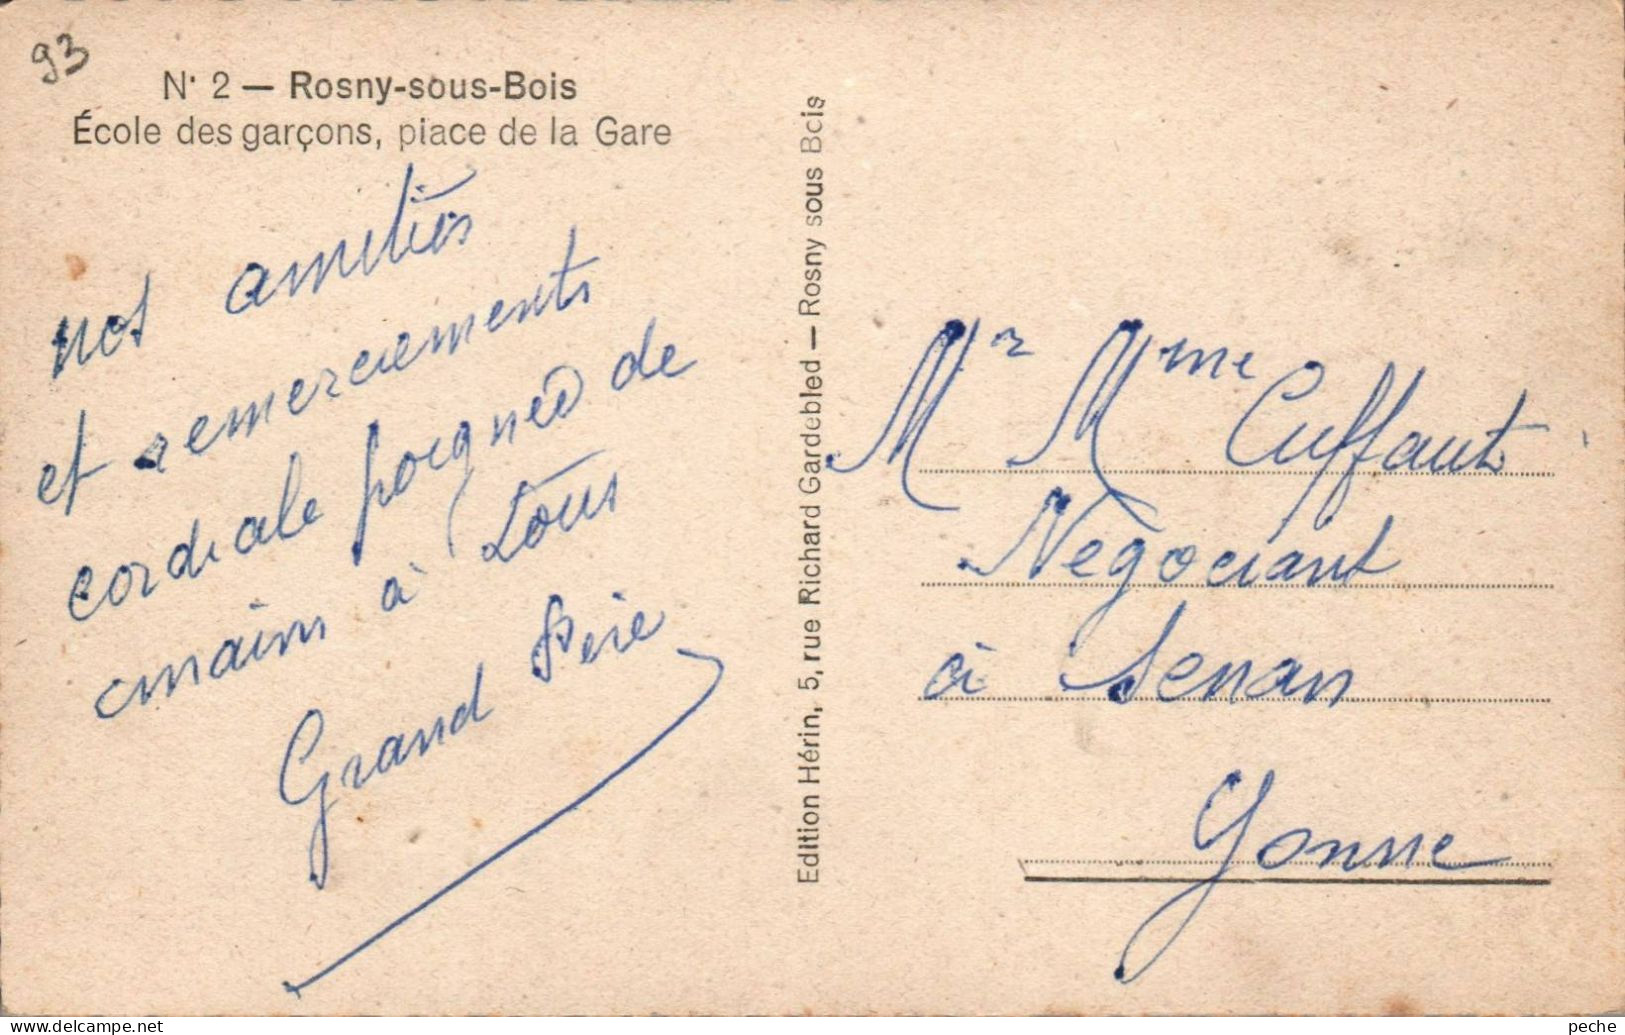 93
N° 2 — Rosny-sous-Bois
École des garçons, place de la Gare
nos amitiés
et remerciements
cordiale poignée de
mains à tous
Grand Père
Edition Hérin, 5, rue Richard Gardebled — Rosny sous Bois
Mr Mme Cuffaut
Négociant
à Senan
Yonne
peche